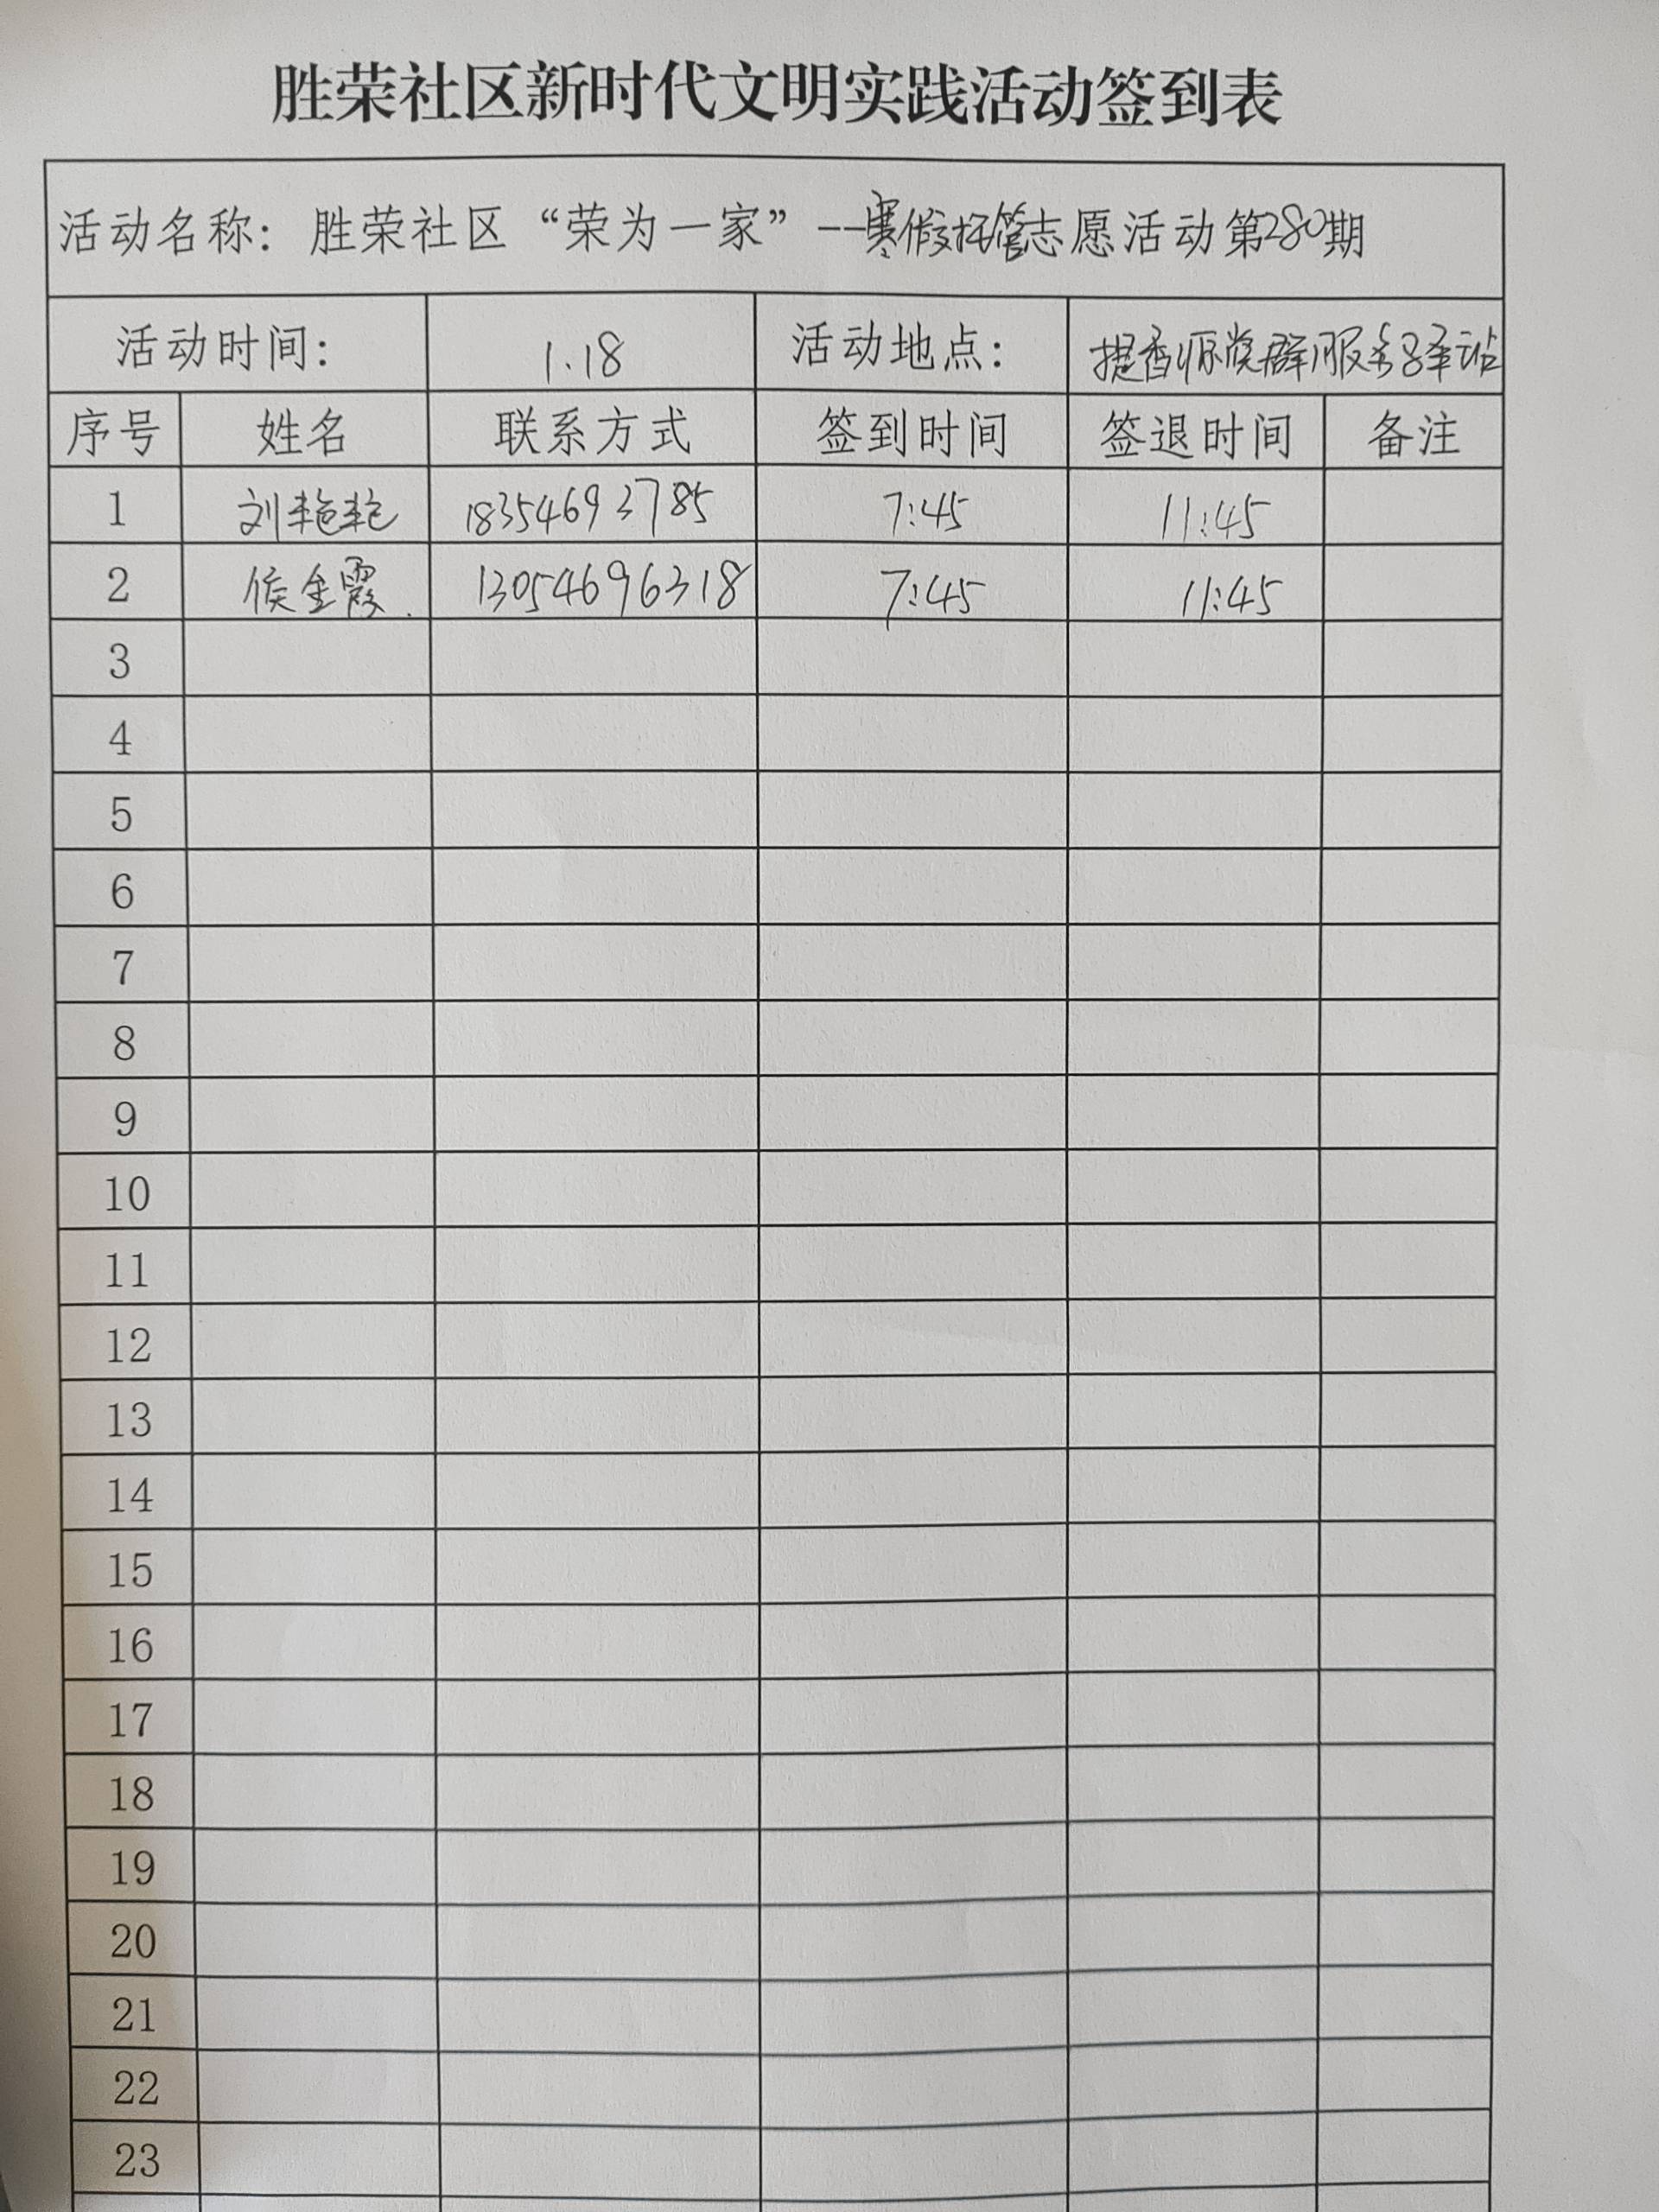 胜荣社区新时代文明实践活动签到表
活动名称：胜荣社区“荣为一家”--寒假托管志愿活动第280期
活动时间： 1.18 活动地点： 提香 群服务驿站
序号 姓名 联系方式 签到时间 签退时间 备注
1 刘艳艳 18354693785 7:45 11:45
2 侯金霞 13054696318 7:45 11:45
3
4
5
6
7
8
9
10
11
12
13
14
15
16
17
18
19
20
21
22
23